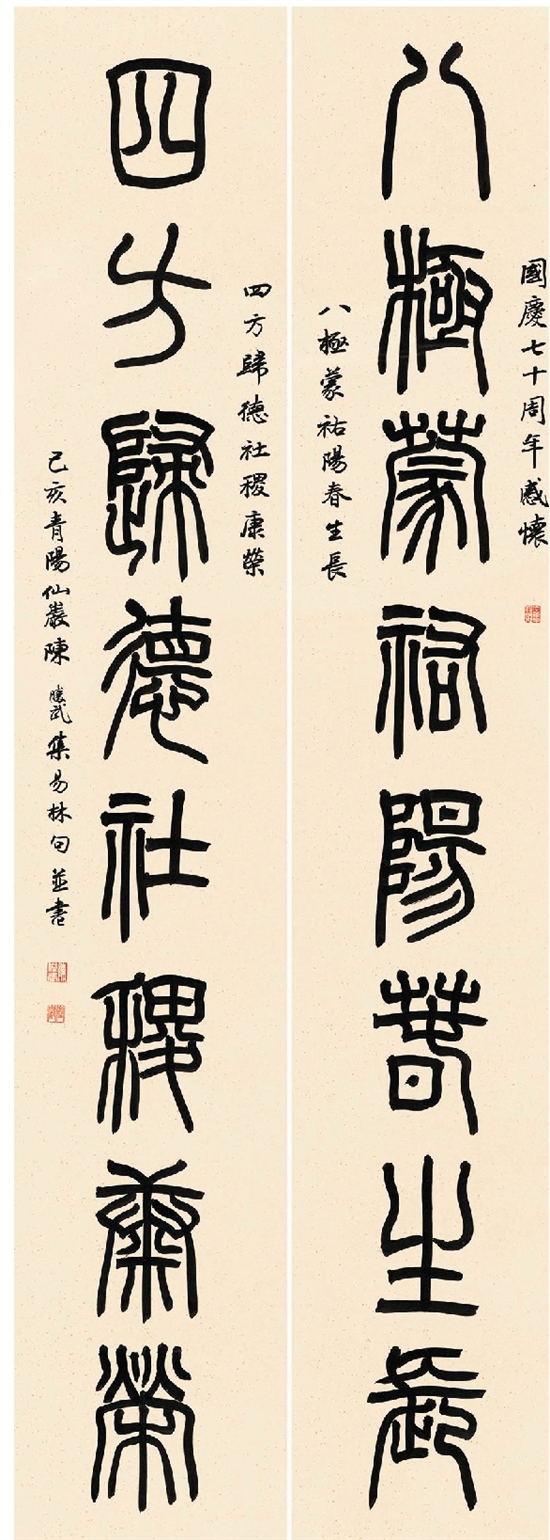 國慶七十周年感懷
八極蒙祐陽春生長
八極蒙祐陽春生長
四方歸德社稷康榮
四方歸德社稷康榮
己亥青陽仙巖陳勝武集易林句並書